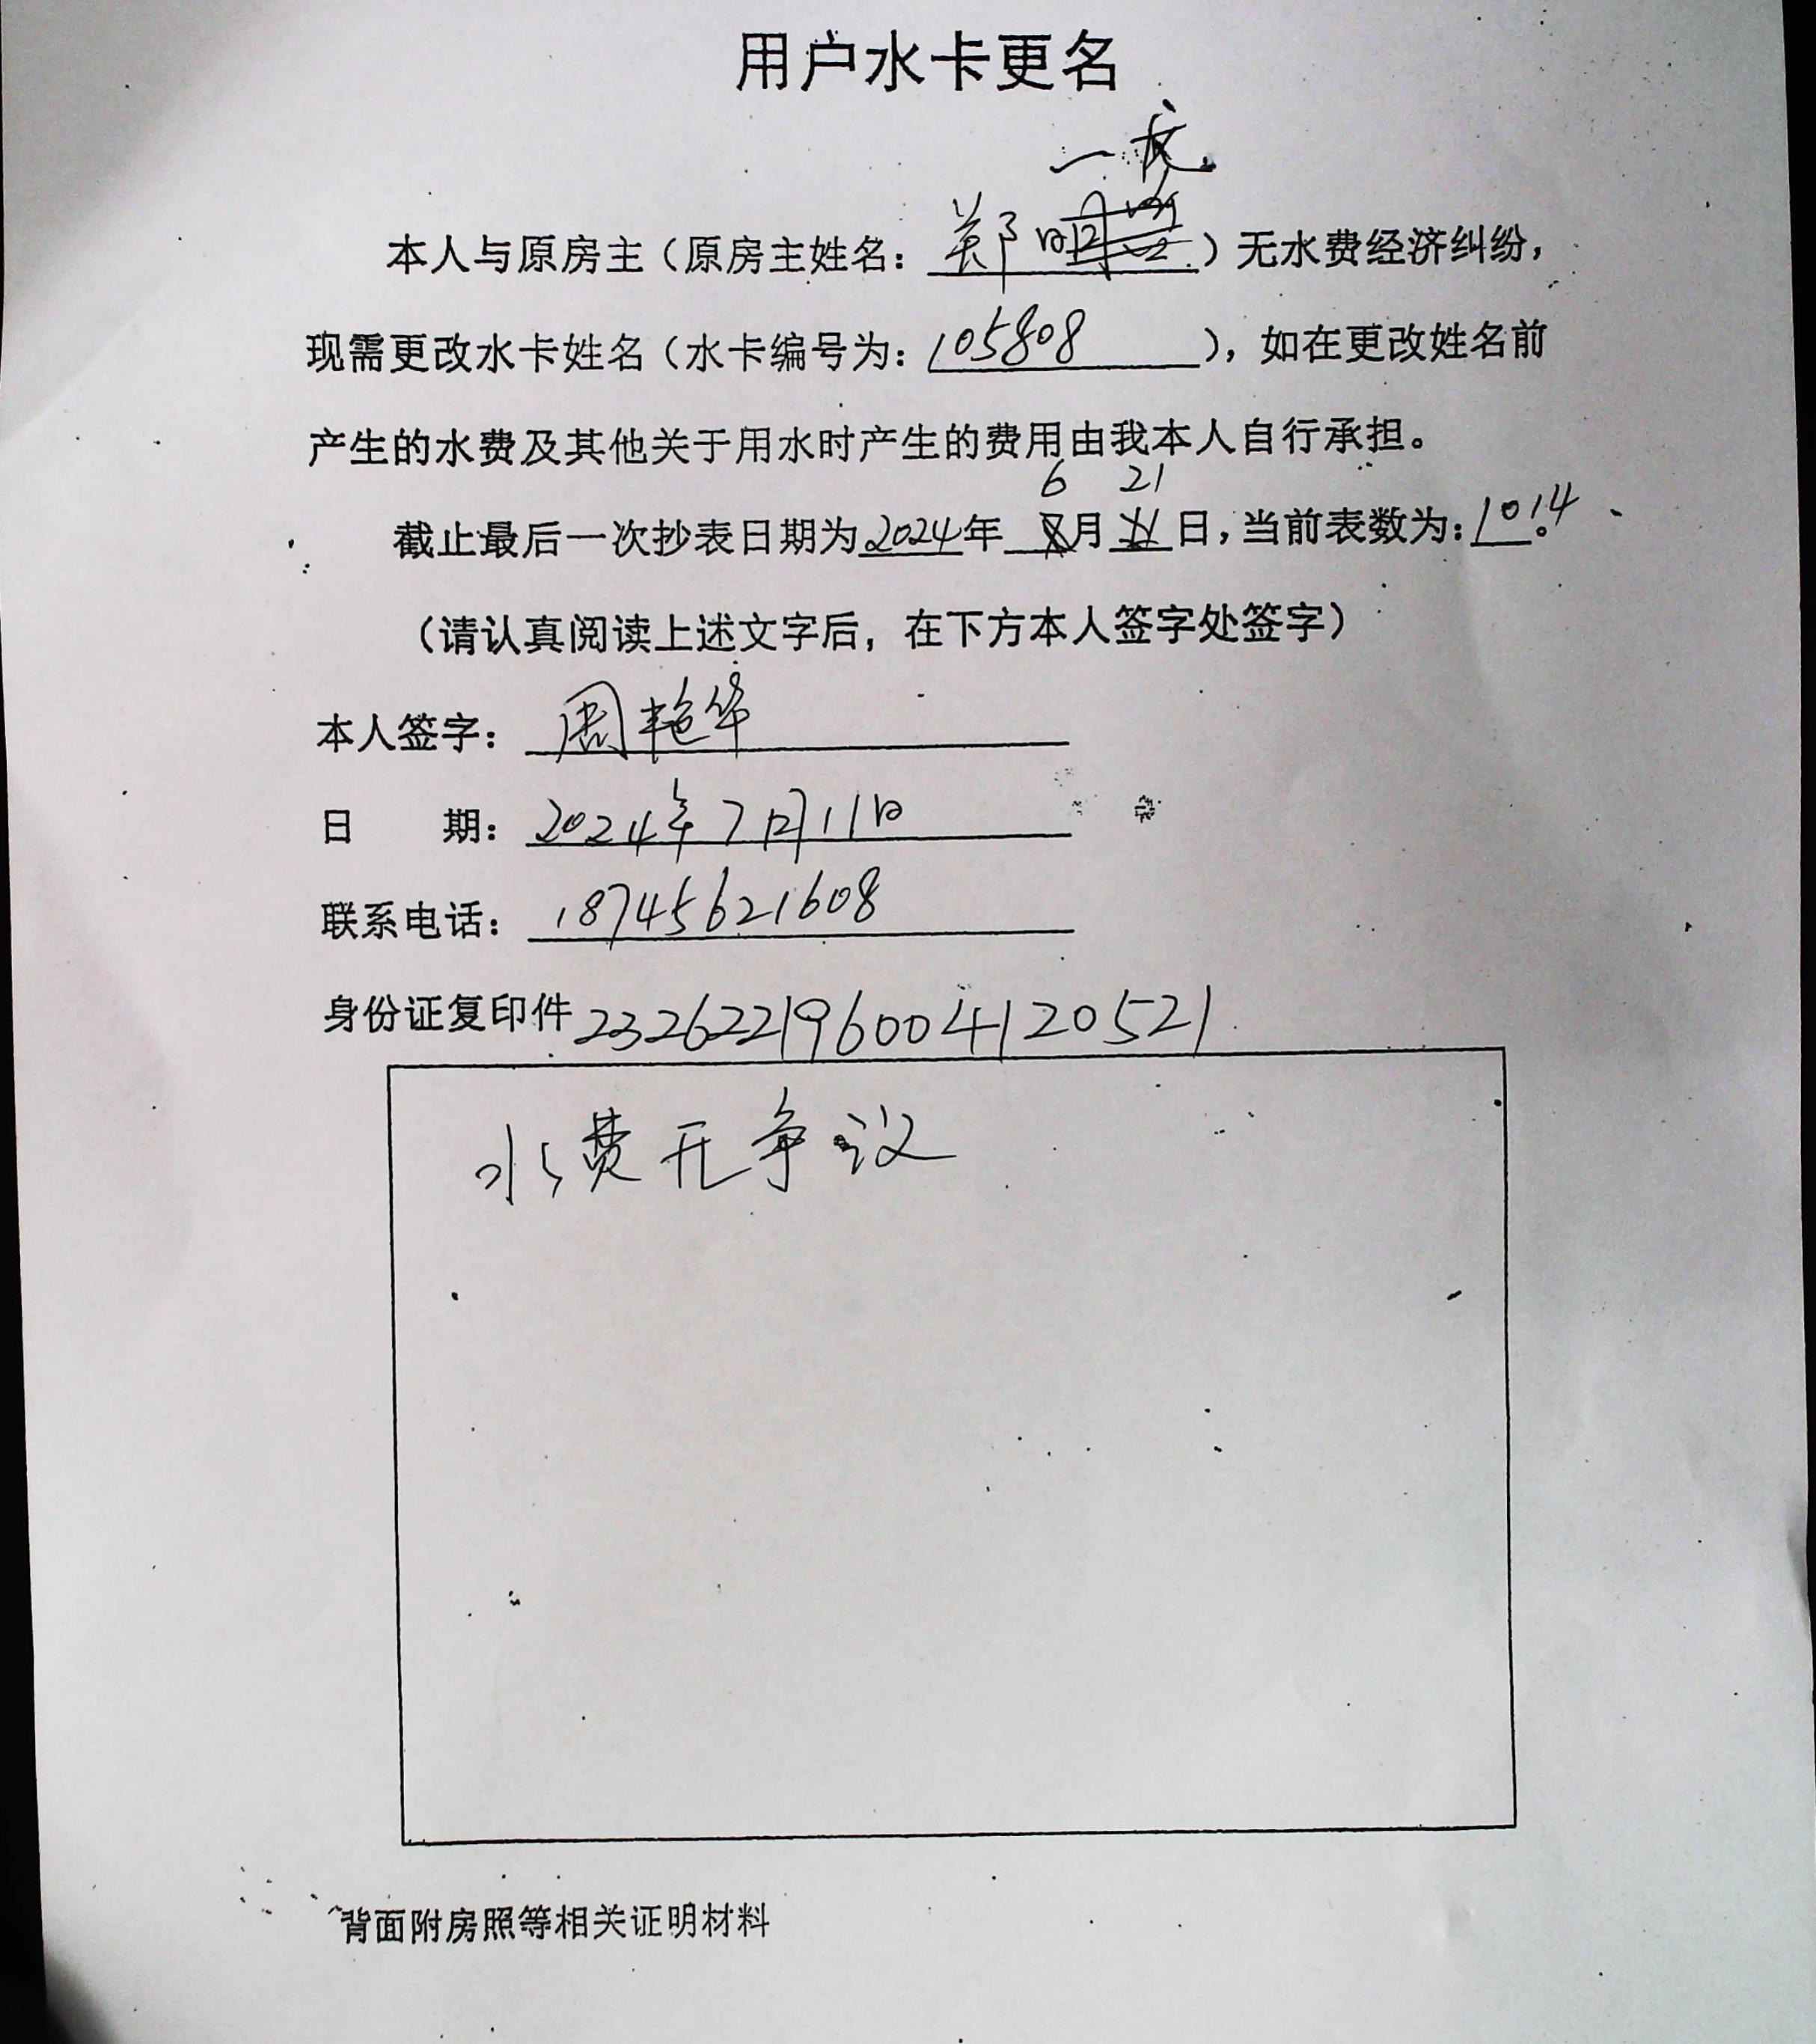 用户水卡更名
一成
本人与原房主（原房主姓名：郑）无水费经济纠纷，
现需更改水卡姓名（水卡编号为：105808），如在更改姓名前
产生的水费及其他关于用水时产生的费用由我本人自行承担。
6 21
截止最后一次抄表日期为2024年 月 日，当前表数为：1014。
（请认真阅读上述文字后，在下方本人签字处签字）
本人签字：周艳华
日 期：2024年7月11日
联系电话：18745621608
身份证复印件232622196004120521
水费无争议
背面附房照等相关证明材料